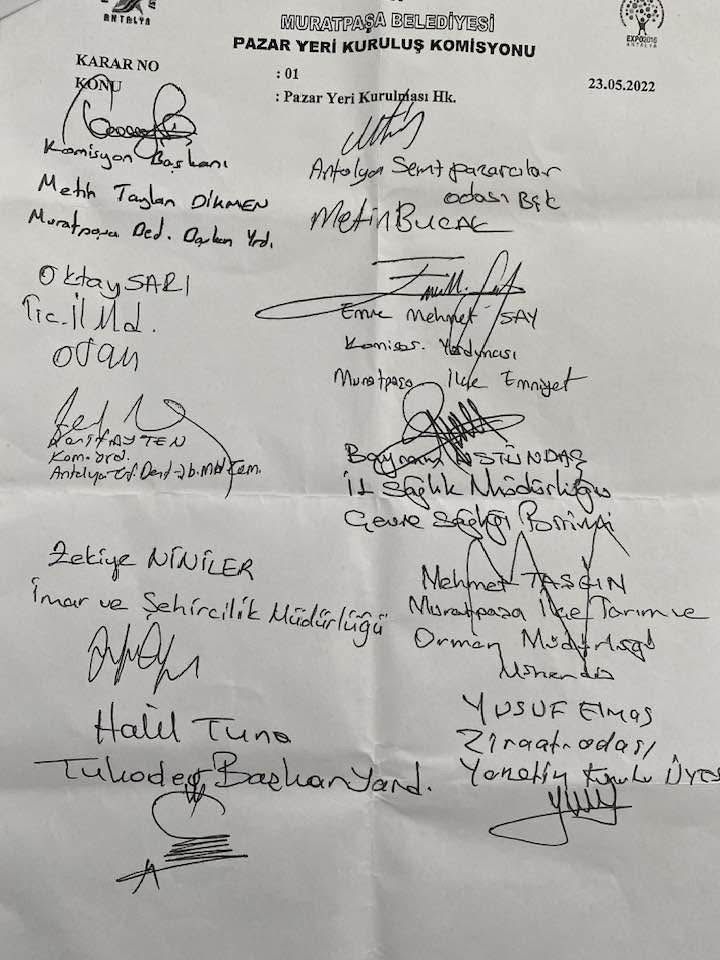 ANTALYA
EXPO2016
ANTALYA
MURATPAŞA BELEDİYESİ
PAZAR YERİ KURULUŞ KOMİSYONU
KARAR NO : 01 23.05.2022
KONU : Pazar Yeri Kurulması Hk.
Komisyon Başkanı
Metih Taylan DİKMEN
Muratpaşa Bed. Başkan Yrd.
Antalya Semt pazarcılar
odası Bşk
Metin BUCAK
Oktay SARI
Tic. İl Md.
Emre Mehmet SAY
Komiser. Yardımcısı
Muratpaşa İlçe Emniyet
AYTEN
Bayram ÜSTÜNDAŞ
İl Sağlık Müdürlüğü
Çevre Sağlığı Birimi
Zekiye NİNİLER
İmar ve Şehircilik Müdürlüğü
Mehmet TAŞGIN
Muratpaşa İlçe Tarım ve
Orman Müdürlüğü
Mühendis
Halil Tuna
Tükoder Başkan Yard.
YUSUF Elmas
Ziraat odası
Yönetim kurulu Üyes